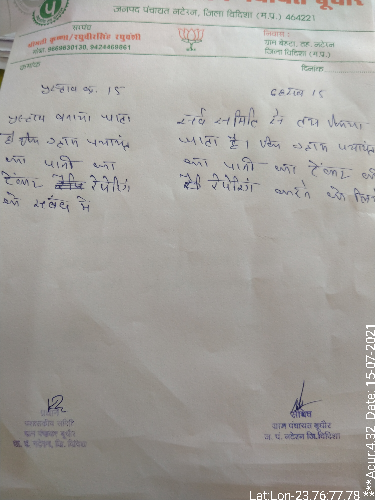 पंचायत बूधौर
जनपद पंचायत नटेरन, जिला विदिशा (म.प्र.) 464221
सरपंच
श्रीमती कृष्णा/रघुवीरसिंह रघुवंशी
मोबा. 9669630130, 9424468861
निवास :
ग्राम बेरुटा, तह. नटेरन
जिला विदिशा (म.प्र.)
क्रमांक
दिनांक
प्रस्ताव क्र. 15
ठहराव 15
प्रस्ताव बनाया जाता
है कि ग्राम पंचायत
का पानी का
टेंकर रिपेरिंग
के संबंध में
सर्व समिति से तय किया
जाता है। कि ग्राम पंचायत
का पानी का टेंकर की
रिपेरिंग कराने के लिये
ग्राम पंचायत बूधौर
ज. पं. नटेरन जि. विदिशा
सचिव
ग्राम पंचायत बूधौर
ज. पं. नटेरन जि.विदिशा
***Acur:4.32 Date: 15-07-2021
Lat:Lon-23.76:77.78